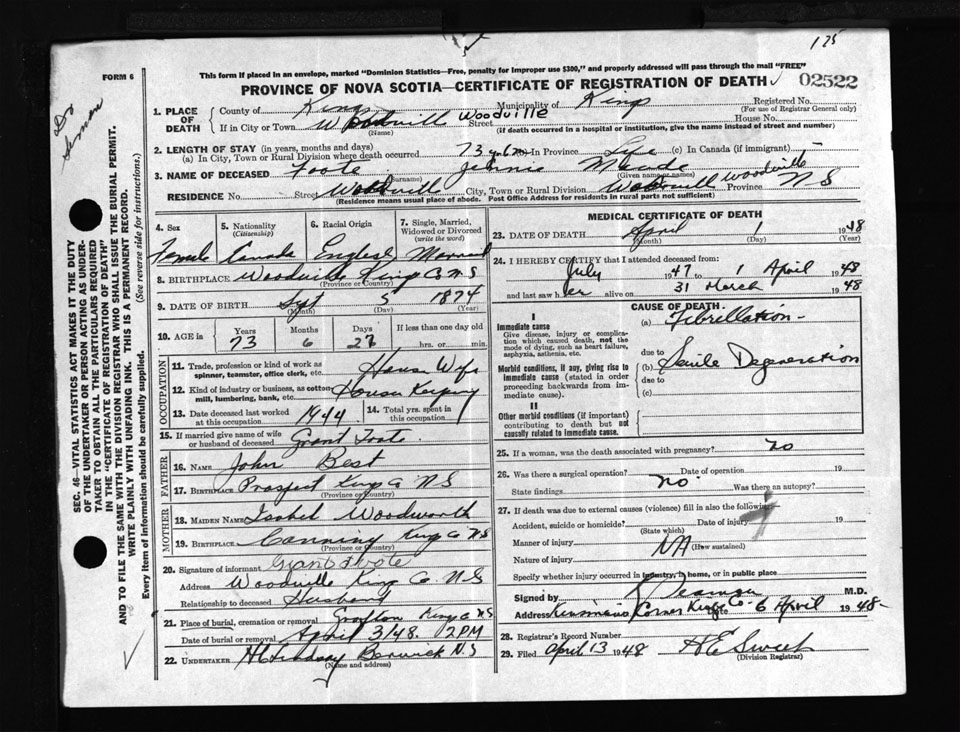 125
FORM 6
This form if placed in an envelope, marked "Dominion Statistics—Free, penalty for improper use $300," and properly addressed will pass through the mail "FREE"
PROVINCE OF NOVA SCOTIA—CERTIFICATE OF REGISTRATION OF DEATH 02522
1. PLACE OF DEATH County of Kings Municipality of Kings Registered No. (For use of Registrar General only)
If in City or Town Woodville Woodville Street House No.
(Name) (If death occurred in a hospital or institution, give the name instead of street and number)
2. LENGTH OF STAY (in years, months and days)
(a) In City, Town or Rural Division where death occurred 73 y 6 m In Province Life (c) In Canada (if immigrant)
3. NAME OF DECEASED Foote Maude
(Surname) (Given name or names)
RESIDENCE No. Street Woodville City, Town or Rural Division Woodville Province N S
(Residence means usual place of abode. Post Office Address for residents in rural parts not sufficient)
4. Sex 5. Nationality (Citizenship) 6. Racial Origin 7. Single, Married, Widowed or Divorced (write the word)
Female Canada English Married
8. BIRTHPLACE Woodville Kings Co N S
(Province or Country)
9. DATE OF BIRTH Sept 5 1874
(Month) (Day) (Year)
10. AGE in Years Months Days If less than one day old
73 6 27 hrs. or min.
OCCUPATION
11. Trade, profession or kind of work as spinner, teamster, office clerk, etc. House Wife
12. Kind of industry or business, as cotton mill, lumbering, bank, etc. House Keeping
13. Date deceased last worked at this occupation 1944 14. Total yrs. spent in this occupation
15. If married give name of wife or husband of deceased Grant Foote
FATHER
16. NAME John Best
17. BIRTHPLACE Prospect Kings Co N S
(Province or Country)
MOTHER
18. MAIDEN NAME Isabel Woodworth
19. BIRTHPLACE Canning Kings Co N S
(Province or Country)
20. Signature of informant Grant Foote
Address Woodville Kings Co. N S
Relationship to deceased Husband
21. Place of burial, cremation or removal Grafton Kings Co N S
Date of burial or removal April 3/48. 2 PM
22. UNDERTAKER Lindsay Berwick N.S
(Name and address)
MEDICAL CERTIFICATE OF DEATH
23. DATE OF DEATH April 1 1948
(Month) (Day) (Year)
24. I HEREBY CERTIFY that I attended deceased from:
July 1947 to 1 April 1948
and last saw her alive on 31 March 1948
CAUSE OF DEATH
I
Immediate cause
Give disease, injury or complication which caused death, not the mode of dying, such as heart failure, asphyxia, asthenia, etc.
(a) Fibrellation
due to
Morbid conditions, if any, giving rise to immediate cause (stated in order proceeding backwards from immediate cause).
(b) Senile Degeneration
due to
(c)
II
Other morbid conditions (if important) contributing to death but not causally related to immediate cause.
25. If a woman, was the death associated with pregnancy? No
26. Was there a surgical operation? Date of operation 19
State findings No. Was there an autopsy?
27. If death was due to external causes (violence) fill in also the following:
Accident, suicide or homicide? Date of injury 19
(State which)
Manner of injury NA (How sustained)
Nature of injury
Specify whether injury occurred in industry, in home, or in public place
Signed by M.D.
Address Corner Kings Co. Date 6 April 1948
28. Registrar's Record Number
29. Filed April 13 1948
(Division Registrar)
SEC. 46—VITAL STATISTICS ACT MAKES IT THE DUTY
OF THE UNDERTAKER OR PERSON ACTING AS UNDERTAKER TO OBTAIN ALL THE PARTICULARS REQUIRED
IN THE "CERTIFICATE OF REGISTRATION OF DEATH"
AND TO FILE THE SAME WITH THE DIVISION REGISTRAR WHO SHALL ISSUE THE BURIAL PERMIT.
WRITE PLAINLY WITH UNFADING INK. THIS IS A PERMANENT RECORD.
Every item of information should be carefully supplied. (See reverse side for instructions.)